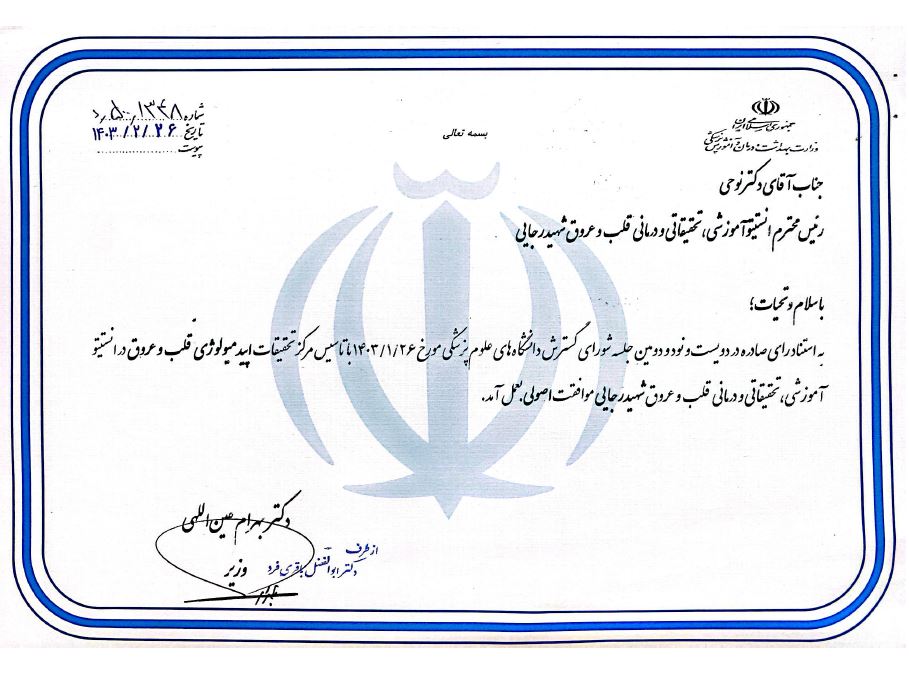 بسمه تعالی
جمهوری اسلامی ایران
وزارت بهداشت، درمان و آموزش پزشکی
شماره ۱۳۴۸/۵۰۰/د
تاریخ ۱۴۰۳/۲/۲۶
پیوست
جناب آقای دکتر نوحی
رئیس محترم انستیتو آموزشی، تحقیقاتی و درمانی قلب و عروق شهید رجایی
با سلام و تحیات؛
به استناد رای صادره در دویست و نود و دومین جلسه شورای گسترش دانشگاه های علوم پزشکی مورخ ۱۴۰۳/۱/۲۶ با تاسیس مرکز تحقیقات اپیدمیولوژی قلب و عروق در انستیتو
آموزشی، تحقیقاتی و درمانی قلب و عروق شهید رجایی موافقت اصولی بعمل آمد.
دکتر بهرام عین اللهی
وزیر
از طرف
دکتر ابوالفضل باقری فرد